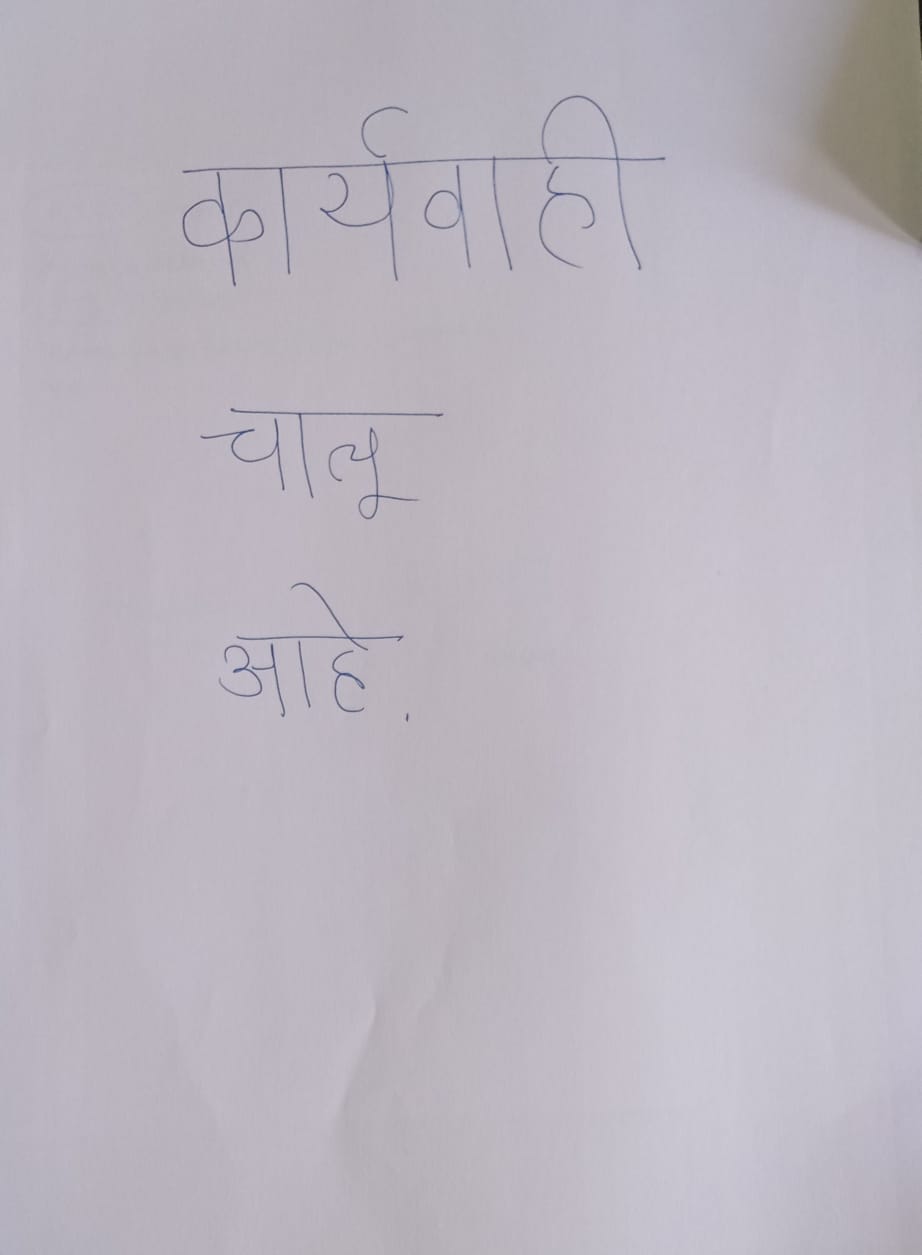 कार्यवाही
चालू
आहे.